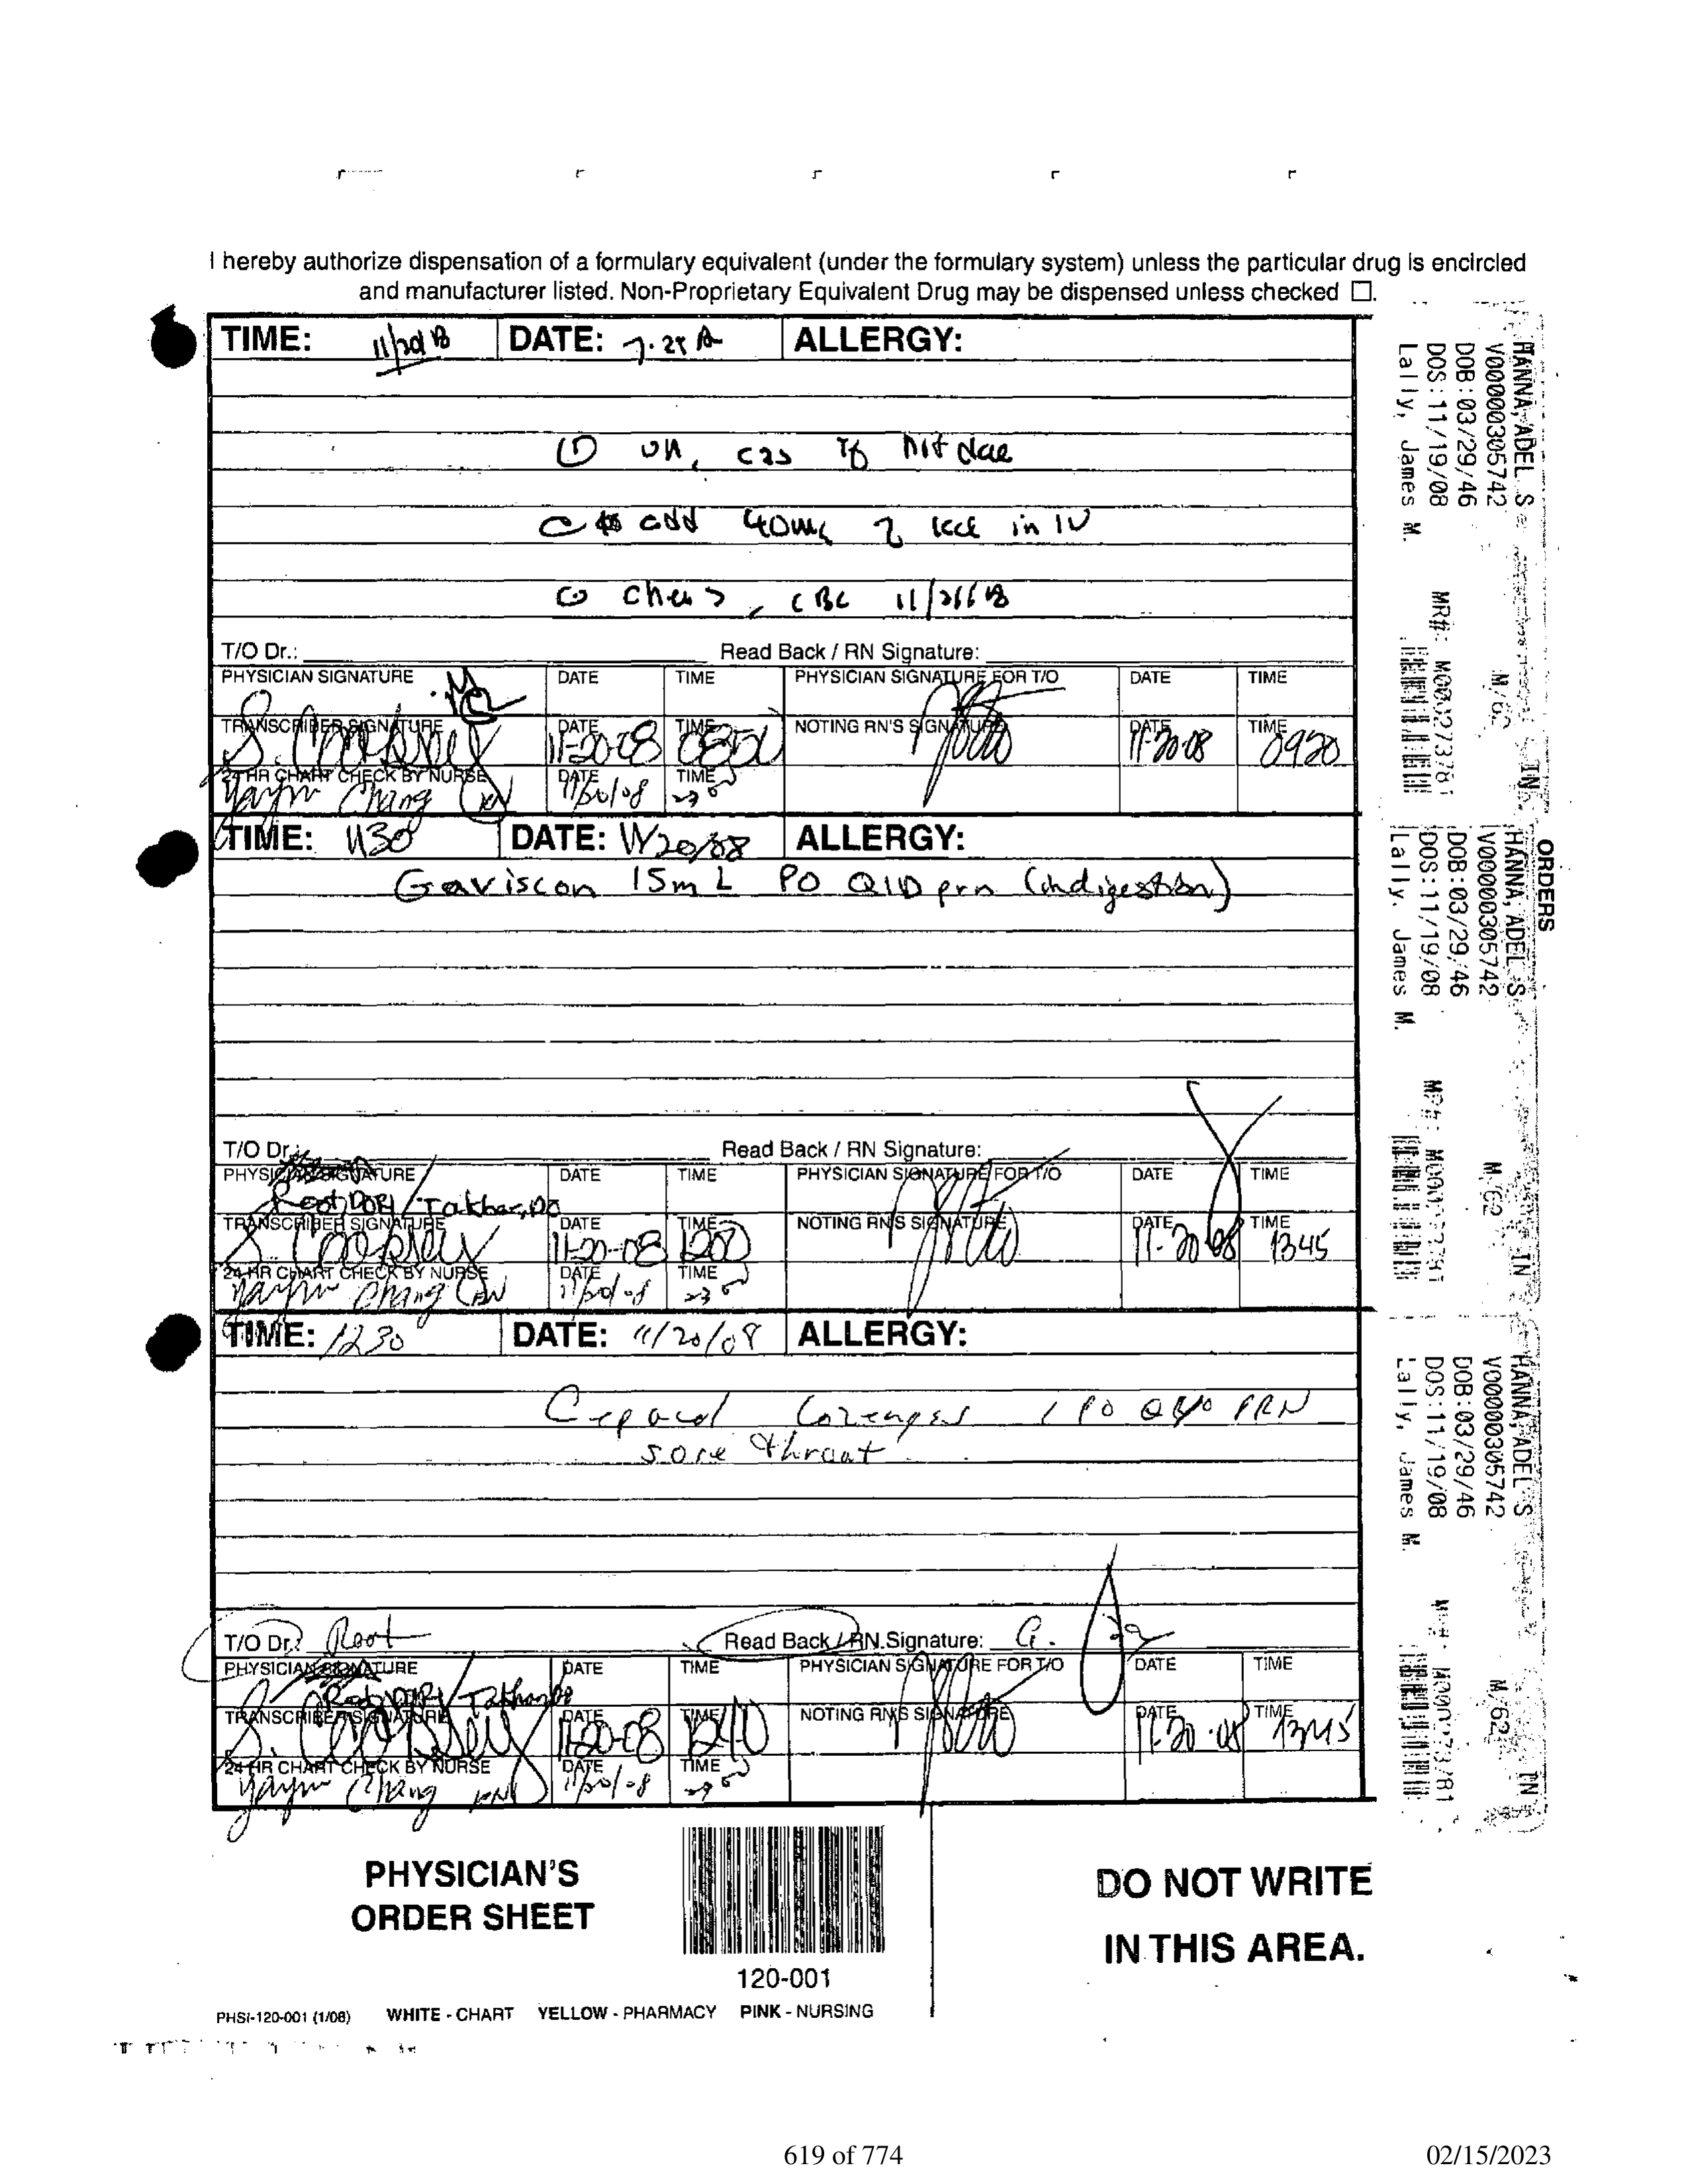 I hereby authorize dispensation of a formulary equivalent (under the formulary system) unless the particular drug is encircled
and manufacturer listed. Non-Proprietary Equivalent Drug may be dispensed unless checked ☐.
TIME: DATE: ALLERGY:
① UA, if not done
add in IV
CBC
T/O Dr.: Read Back / RN Signature:
PHYSICIAN SIGNATURE DATE TIME PHYSICIAN SIGNATURE FOR T/O DATE TIME
TRANSCRIBER SIGNATURE DATE 11-20-08 TIME NOTING RN'S SIGNATURE DATE 11-20-08 TIME 0920
24 HR CHART CHECK BY NURSE Chang RN DATE 11/20/08 TIME
TIME: 1130 DATE: 11/20/08 ALLERGY:
Gaviscon 15mL PO QID prn (indigestion)
T/O Dr.: Read Back / RN Signature:
PHYSICIAN SIGNATURE DATE TIME PHYSICIAN SIGNATURE FOR T/O DATE TIME
Root / Takhar, DO
TRANSCRIBER SIGNATURE DATE 11-20-08 TIME 1200 NOTING RN'S SIGNATURE DATE 11-20-08 TIME 1345
24-HR CHART CHECK BY NURSE Chang RN DATE 11/20/08 TIME
TIME: 1230 DATE: 11/20/08 ALLERGY:
Cepacol Lozenges 1 PO PRN
sore throat
T/O Dr.: Root Read Back / RN Signature: G.
PHYSICIAN SIGNATURE DATE TIME PHYSICIAN SIGNATURE FOR T/O DATE TIME
TRANSCRIBER SIGNATURE DATE 11-20-08 TIME 1240 NOTING RN'S SIGNATURE DATE 11-20-08 TIME 1345
24 HR CHART CHECK BY NURSE Chang RN DATE 11/20/08 TIME
HANNA, ADEL S
V00000305742 M/62 IN
DOB:03/29/46
DOS:11/19/08 MR#: M000273781
Lally, James M.
ORDERS
HANNA, ADEL S IN
V00000305742 M/62
DOB:03/29/46
DOS:11/19/08
Lally, James M.
HANNA, ADEL S IN
V00000305742 M/62
DOB:03/29/46
DOS:11/19/08 M000273781
Lally, James M.
PHYSICIAN'S
ORDER SHEET
120-001
DO NOT WRITE
IN THIS AREA.
PHSI-120-001 (1/08) WHITE - CHART YELLOW - PHARMACY PINK - NURSING
619 of 774
02/15/2023